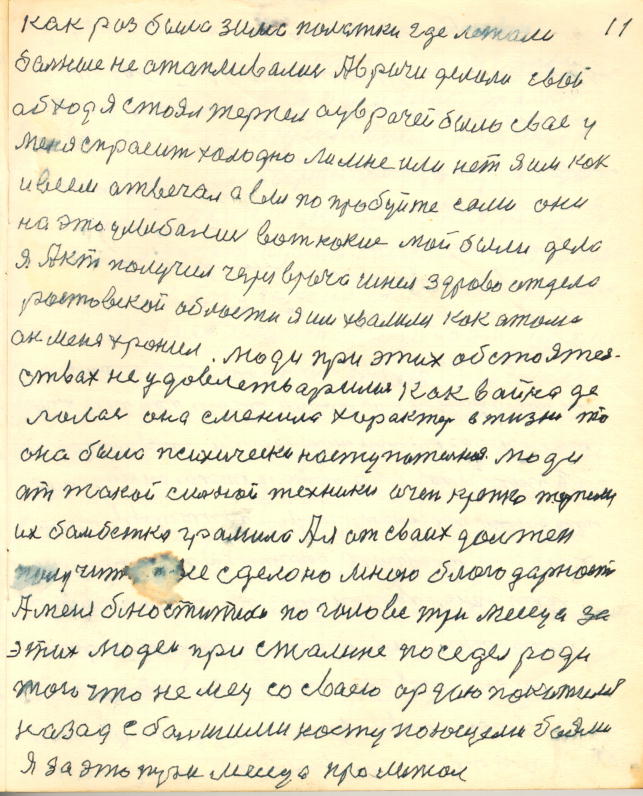 11
как роз была зима полатки где лежали
болные не атапливалис А врачи делали свой
обход я стоял терпел а у врачей было свае у
меня спрасит холодно ли мне или нет я им как
и всем отвечал а вы по пробуйте сами они
на это улыбалис вот какие мой были дела
я Акт получил через врача
ростовской области я им хвалили как атома
он меня хронил. люди при этих обстояте-
ствах не удовлетварялис как война де
лолас она сменила характер в жизни то
она была психически наступателная. люди
ат такой силной техники очен крепко терпели
их бамбёжка грамила А я от сваих должен
получит не сделоно мною благодарност
А меня по голове три месеца за
этих людей при сталине поседел ради
того что немец со сваею ордаю покатился
назад с болшими наступающеми боями
я за это три месеца пролежал